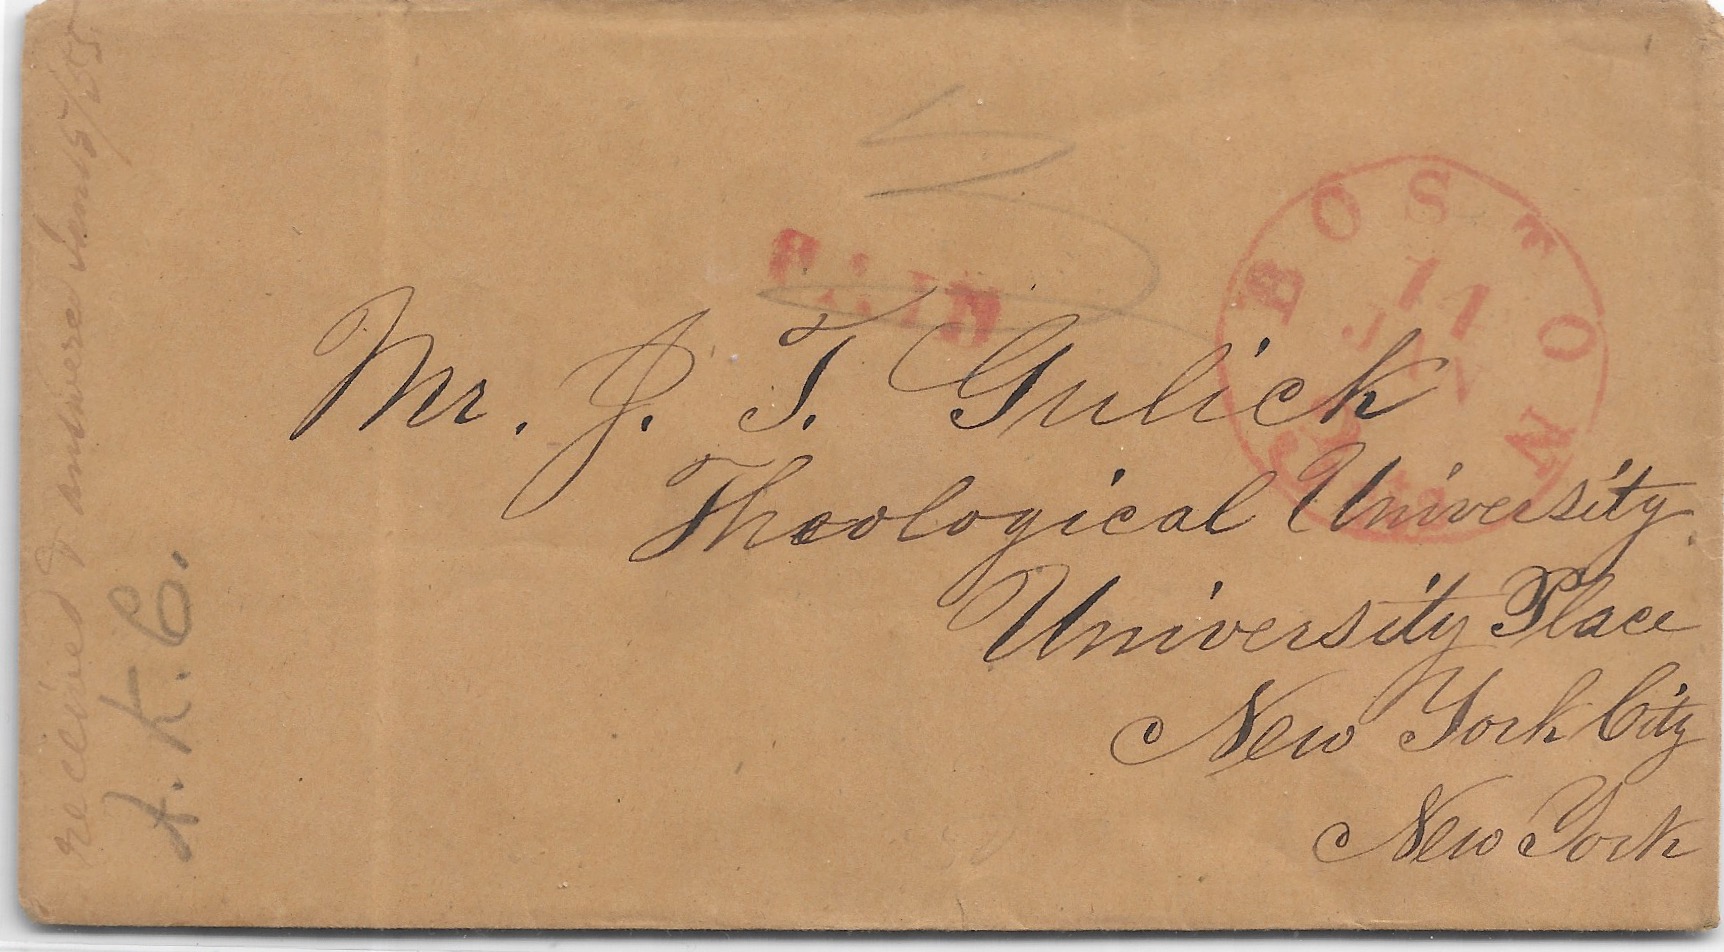 received & answered Jan 15/55
A. K. C.
PAID
BOSTON
11
JAN
3 cts
Mr. J. T. Gulick
Theological University.
University Place
New York City
New York